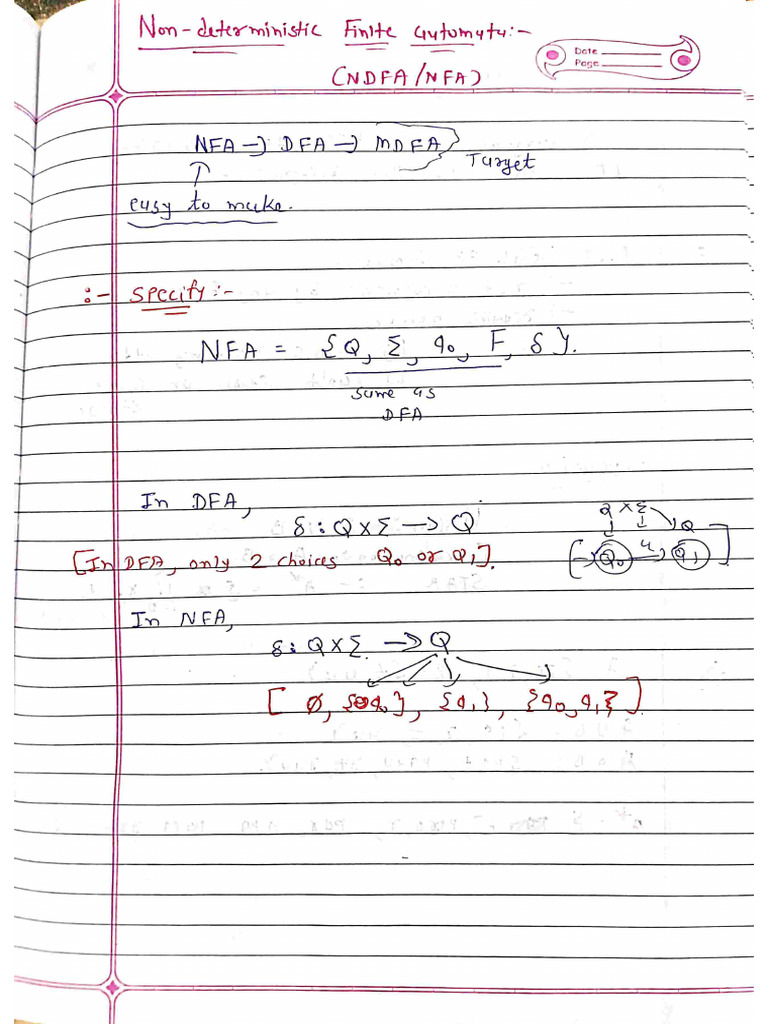 Non-deterministic Finite automata:-
(NDFA/NFA)
Date
Page
NFA → DFA → MDFA
Target
↑
easy to make.
:- Specify:-
NFA = {Q, Σ, q₀, F, δ}.
same as
DFA
In DFA,
δ: Q×Σ → Q
[In DFA, only 2 choices Q₀ or Q₁].
Q×Σ
Q
[→Q₀ a→ Q₁]
In NFA,
δ: Q×Σ → Q
[ ∅, {q₀}, {q₁}, {q₀,q₁} ].